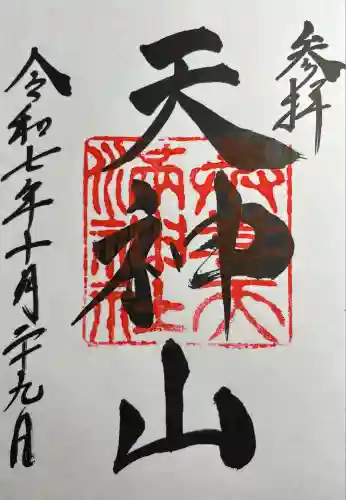 参拝
天神山
令和七年十月二十九日